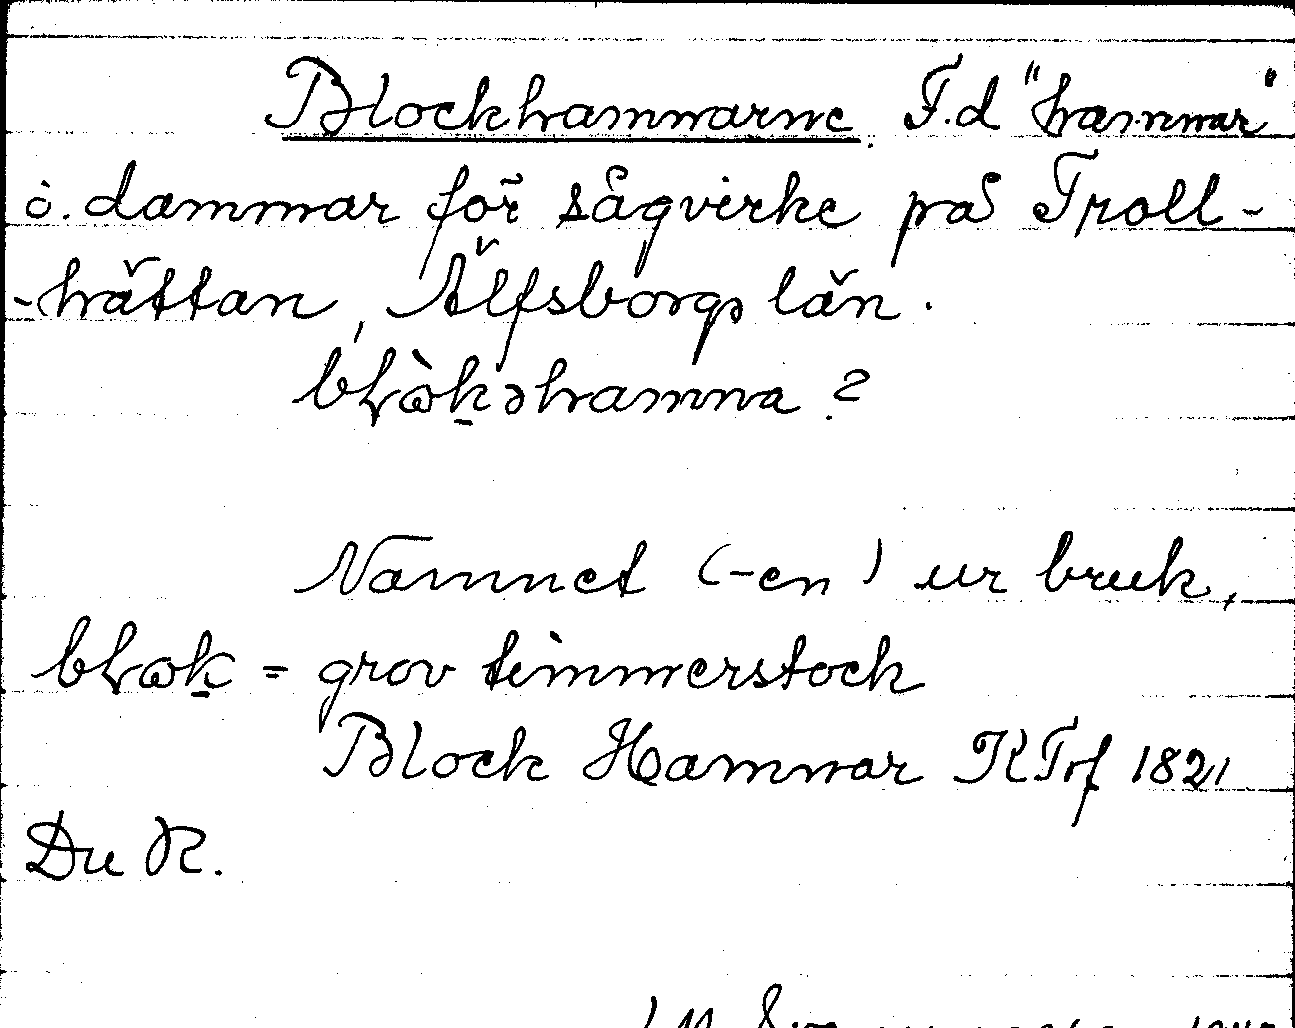 Blockhamnarne. F.d "hamnar"
o. dammar för sågvirke på Troll-
-hättan, Älfsborgs län.
Namnet (-en) ur bruk,
= grov timmerstock
Block Hamnar KTrf 1821
Du R.